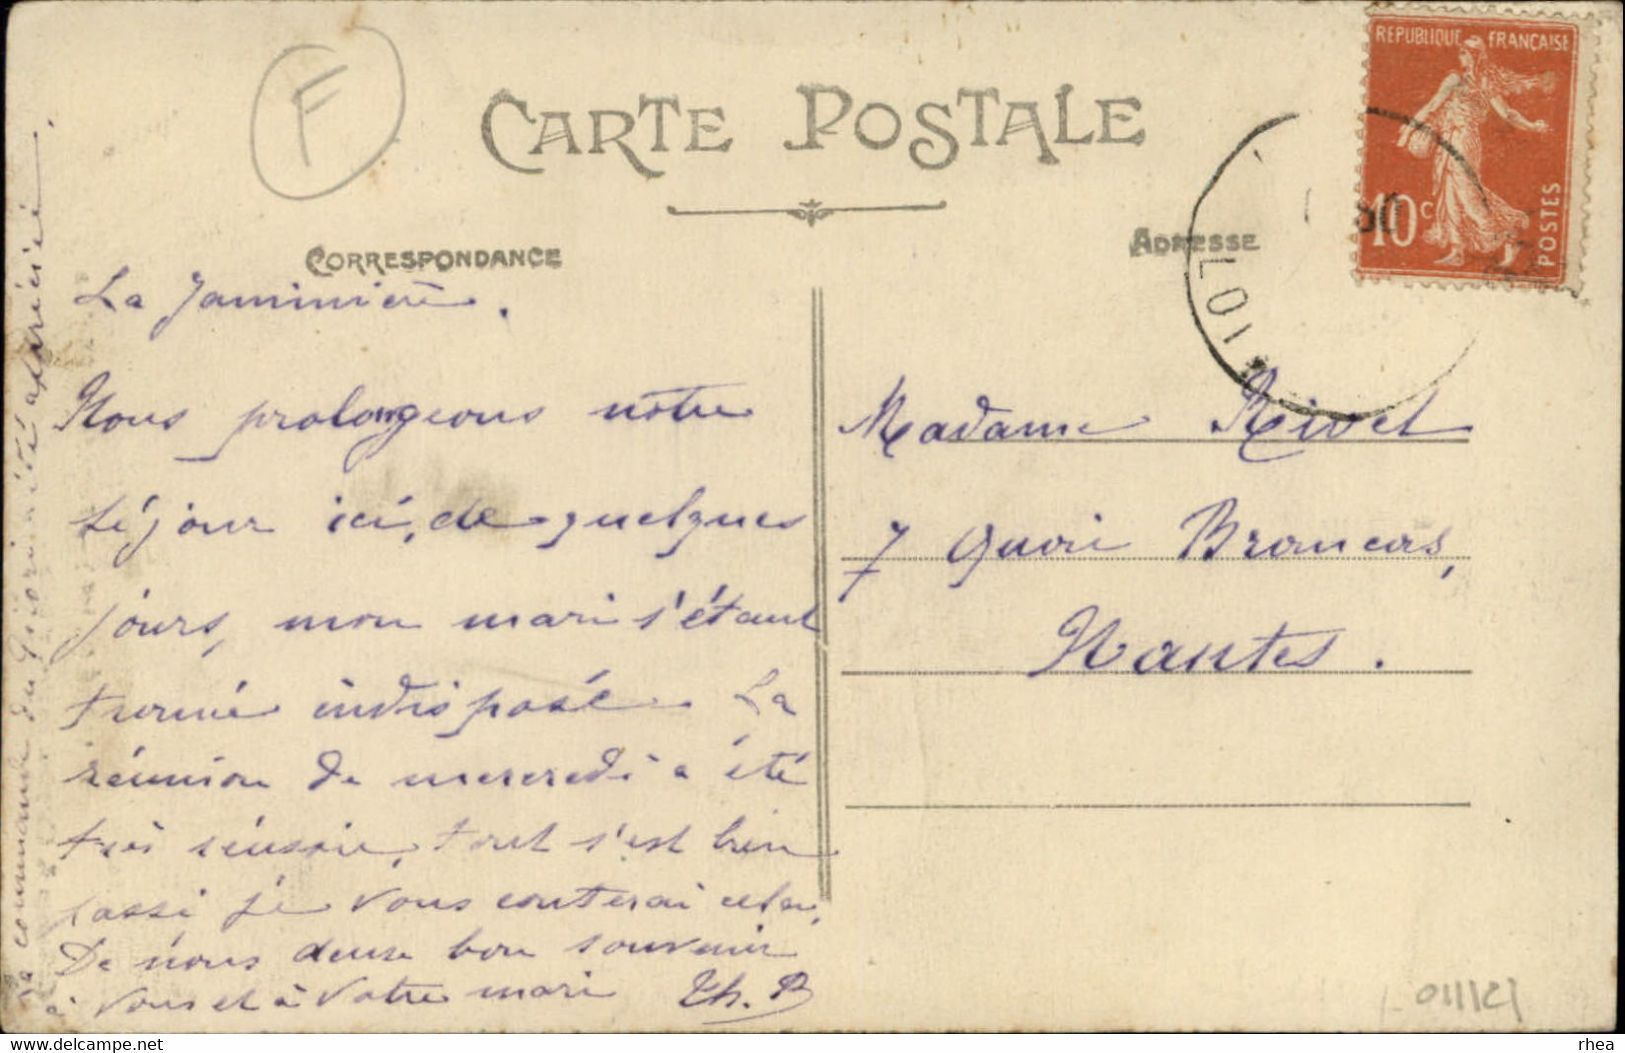 CARTE POSTALE
CORRESPONDANCE
ADRESSE
REPUBLIQUE FRANÇAISE
10c
POSTES
LOI
F
La Jaminière.
Nous prolongeons notre
séjour ici, de quelques
jours, mon mari s'étant
trouvé indisposé. La
réunion de mercredi a été
très réussie, tout s'est bien
passé, je vous conterai cela,
De nous deux bon souvenir
à vous et à votre mari Th. B
la commande du a été appréciée.
Madame Rivet
7 Quai Brancas,
Nantes.
delcampe.net
rhea